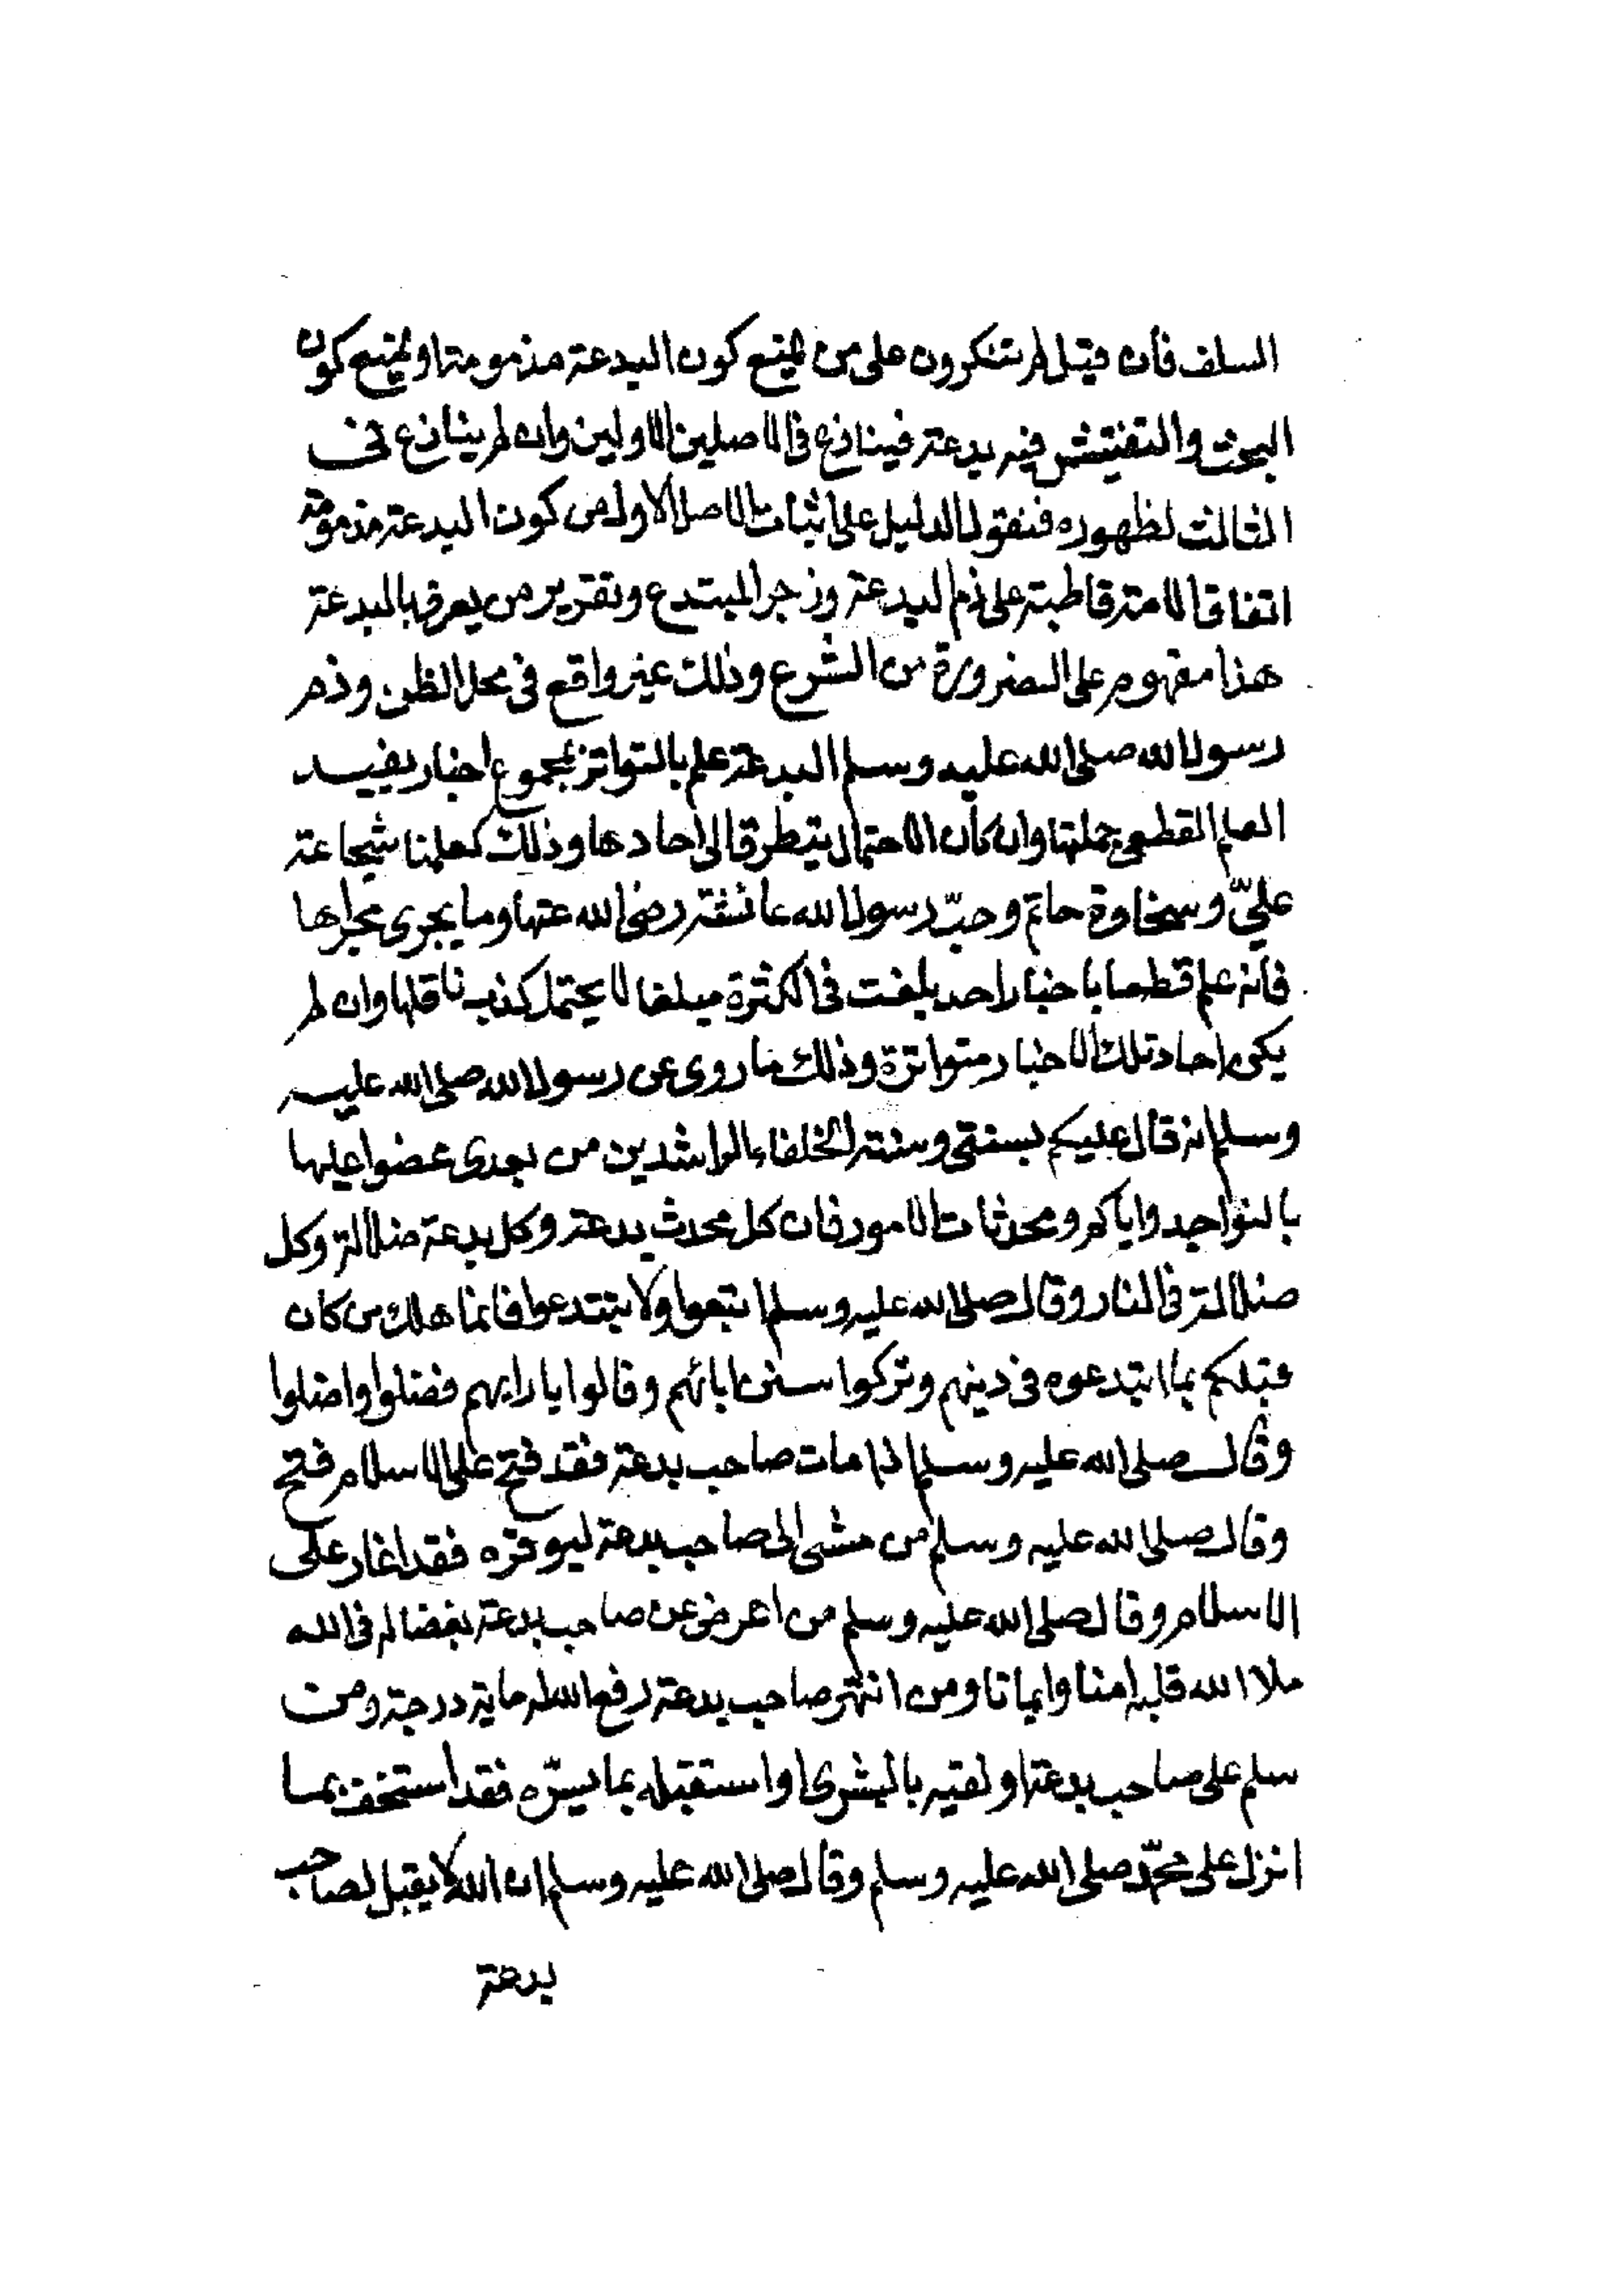 السلف فأن قيل لم تنكرون على من يمنع كون البدعة مذمومتا ويمنع كون
البحث والتفتيش فيه بدعة فينازع فى الاصلين الاولين وان لم ينازع فى
الثالث لظهوره فنقول الدليل على اثبات الاصل الاول من كون البدعة مذمومة
اتفاق الامة قاطبة على ذم البدعة وزجر المبتدع وتقرير من يعرف بالبدعة
هذا مفهوم على الضرورة من الشرع وذلك غير واقع فى محل الظن وذم
رسول الله صلى الله عليه وسلم البدعة علم بالتواتر بمجموع اخبار يفيد
العلم القطعى جملتها وان كان الاحتمال يتطرق الى احادها وذلك كعلمنا شجاعة
عليّ وسخاوة حاتم وحبّ رسول الله عائشة رضى الله عنها وما يجرى مجراها
فأنه علم قطعا باخبار احد بلغت فى الكثرة مبلغا لا يحتمل كذب ناقلها وان لم
يكن احاد تلك الاخبار متواترة وذلك ما روى عن رسول الله صلى الله عليه
وسلم انه قال عليكم بسنتى وسنة الخلفاء الراشدين من بعدى عضوا عليها
بالنواجد واياكم ومحدثات الامور فان كل محدث بدعة وكل بدعة ضلالة وكل
ضلالة فى النار وقال صلى الله عليه وسلم اتبعوا ولا تبتدعوا فانما هلك من كان
قبلكم بما ابتدعوه فى دينهم وتركوا سنن ابائهم وقالوا بارايهم فضلوا واضلوا
وقال صلى الله عليه وسلم اذا مات صاحب بدعة فقد فتح على الاسلام فتح
وقال صلى الله عليه وسلم من مشى الى صاحب بدعة ليوقره فقد اغار على
الاسلام وقال صلى الله عليه وسلم من اعرض عن صاحب بدعة بغضا له فى الله
ملا الله قلبه امنا وايمانا ومن انتهر صاحب بدعة رفع الله له ماية درجة ومن
سلم على صاحب بدعة او لقيه بالبشرى او استقبله بما يسرّه فقد استخف بما
انزل على محمّد صلى الله عليه وسلم وقال صلى الله عليه وسلم ان الله لا يقبل لصاحب
بدعة